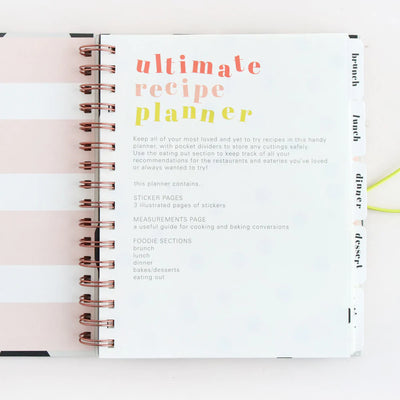 ultimate
recipe
planner
Keep all of your most loved and yet to try recipes in this handy
planner, with pocket dividers to store any cuttings safely.
Use the eating out section to keep track of all your
recommendations for the restaurants and eateries you've loved
or always wanted to try!
this planner contains..
STICKER PAGES
3 illustrated pages of stickers
MEASUREMENTS PAGE
a useful guide for cooking and baking conversions
FOODIE SECTIONS
brunch
lunch
dinner
bakes/desserts
eating out
brunch
lunch
dinner
dessert